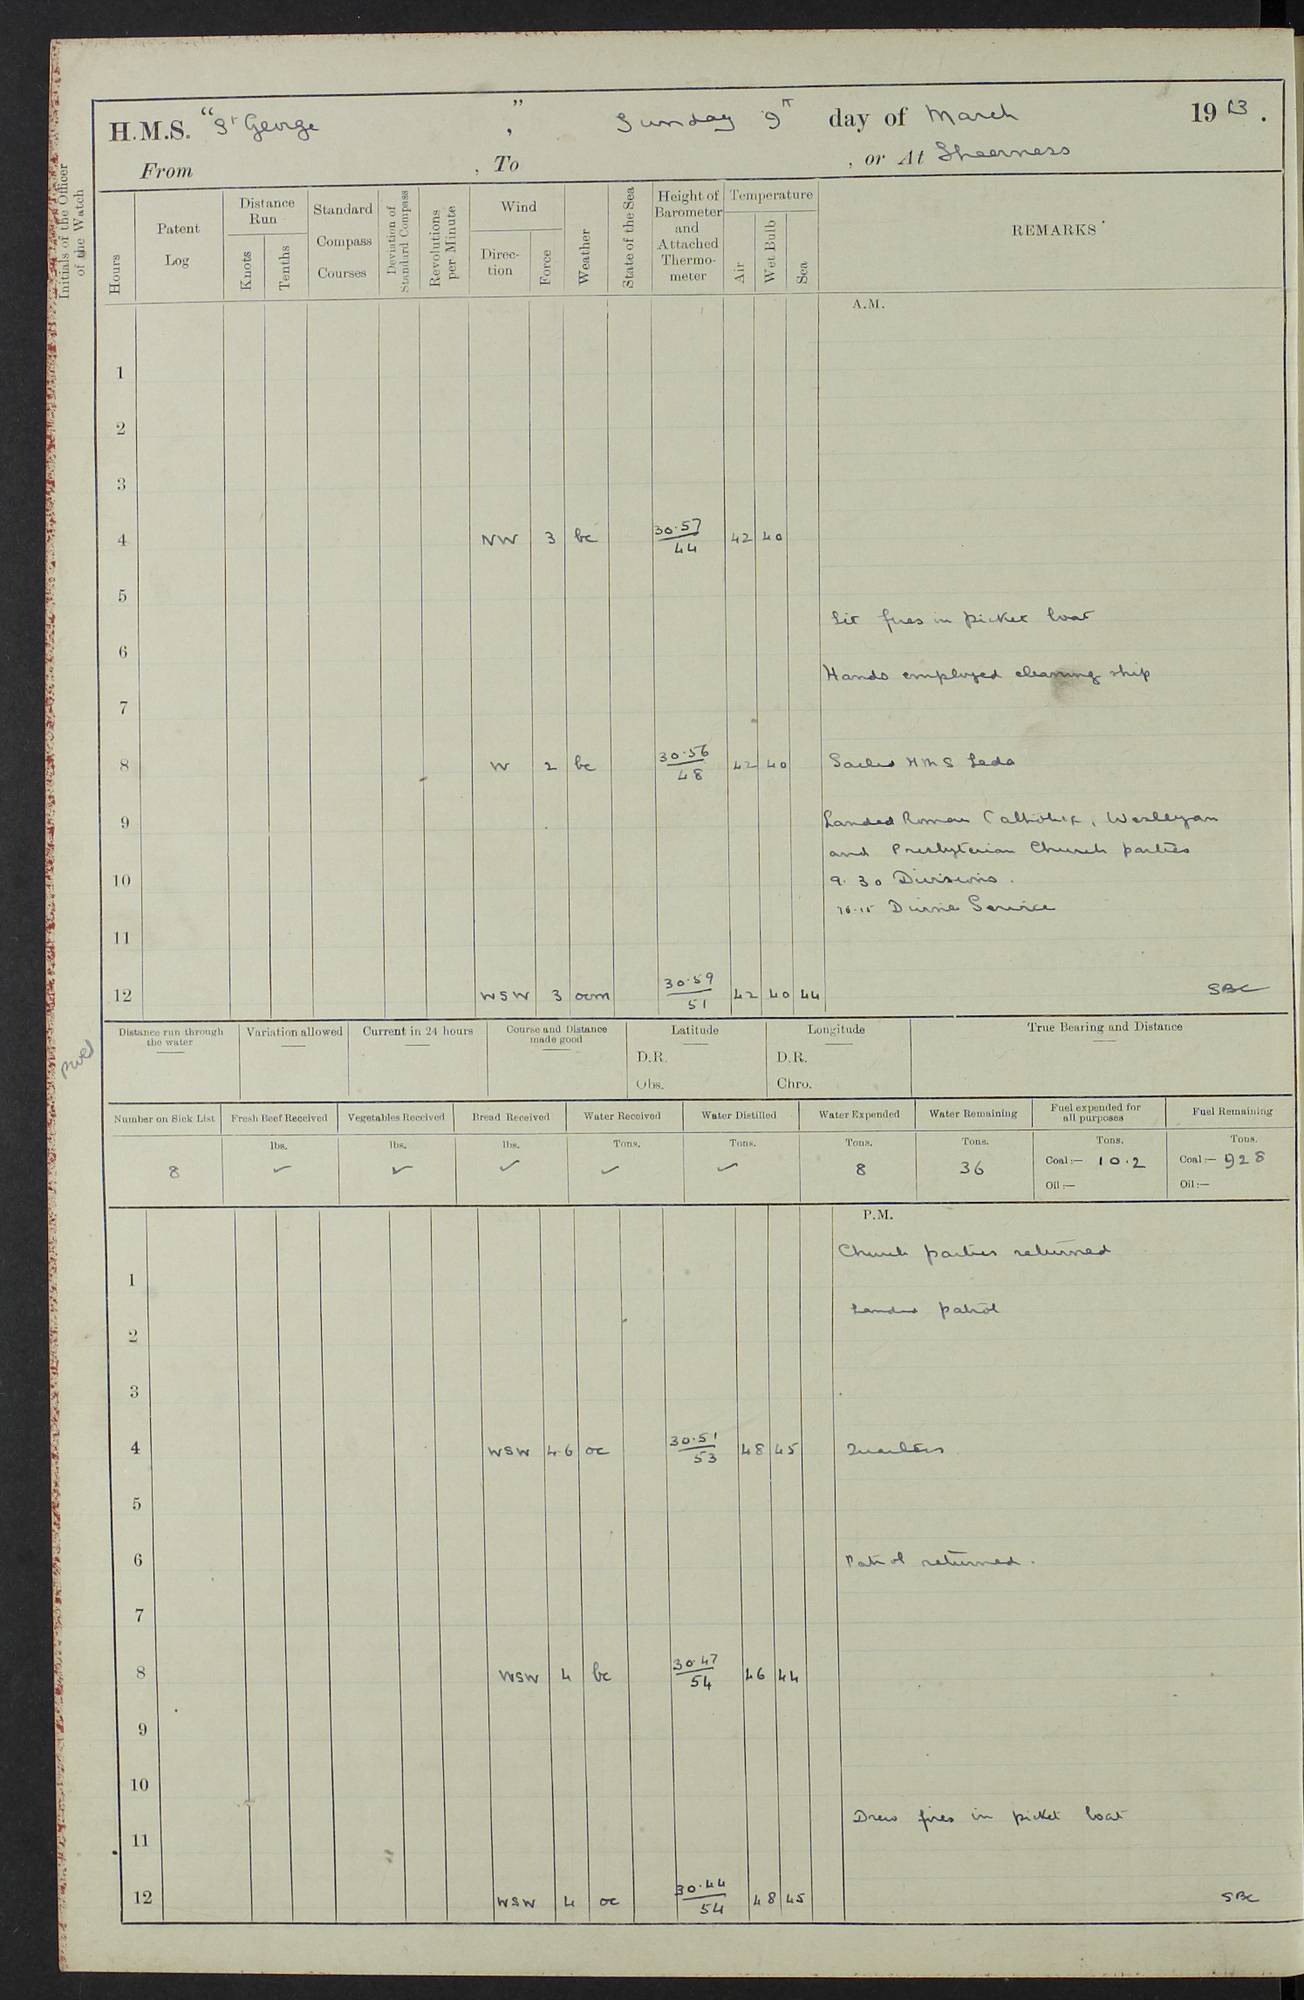 H.M.S. "St George", Sunday 9th day of March 1913.
From , To , or At Sheerness
Initials of the Officer of the Watch
Hours
Patent Log
Distance Run
Knots
Tenths
Standard Compass Courses
Deviation of Standard Compass
Revolutions per Minute
Wind
Direction
Force
Weather
State of the Sea
Height of Barometer and Attached Thermometer
Temperature
Air
Wet Bulb
Sea
REMARKS
A.M.
1
2
3
4 NW 3 bc 30.57/44 42 40
5
Lit fires in picket boat
6
Hands employed cleaning ship
7
8 W 2 bc 30.56/48 42 40 Sailed HMS Leda
9 Landed Roman Catholic, Wesleyan
and Presbyterian Church parties
10 9.30 Divisions.
10.15 Divine Service
11
12 WSW 3 ocm 30.59/51 42 40 44 SBC
Distance run through the water
Variation allowed
Current in 24 hours
Course and Distance made good
Latitude
D.R.
Obs.
Longitude
D.R.
Chro.
True Bearing and Distance
Number on Sick List
Fresh Beef Received
Vegetables Received
Bread Received
Water Received
Water Distilled
Water Expended
Water Remaining
Fuel expended for all purposes
Fuel Remaining
lbs. lbs. lbs. Tons. Tons. Tons. Tons. Tons. Tons.
8 ✓ ✓ ✓ ✓ ✓ 8 36 Coal:— 10.2 Coal:— 928
Oil:— Oil:—
P.M.
Church parties returned
1
Landed patrol
2
3
4 WSW 4.6 oc 30.51/53 48 45 Quarters
5
6 Patrol returned.
7
8 WSW 4 bc 30.47/54 46 44
9
10
Drew fires in picket boat
11
12 WSW 4 oc 30.44/54 48 45 SBC